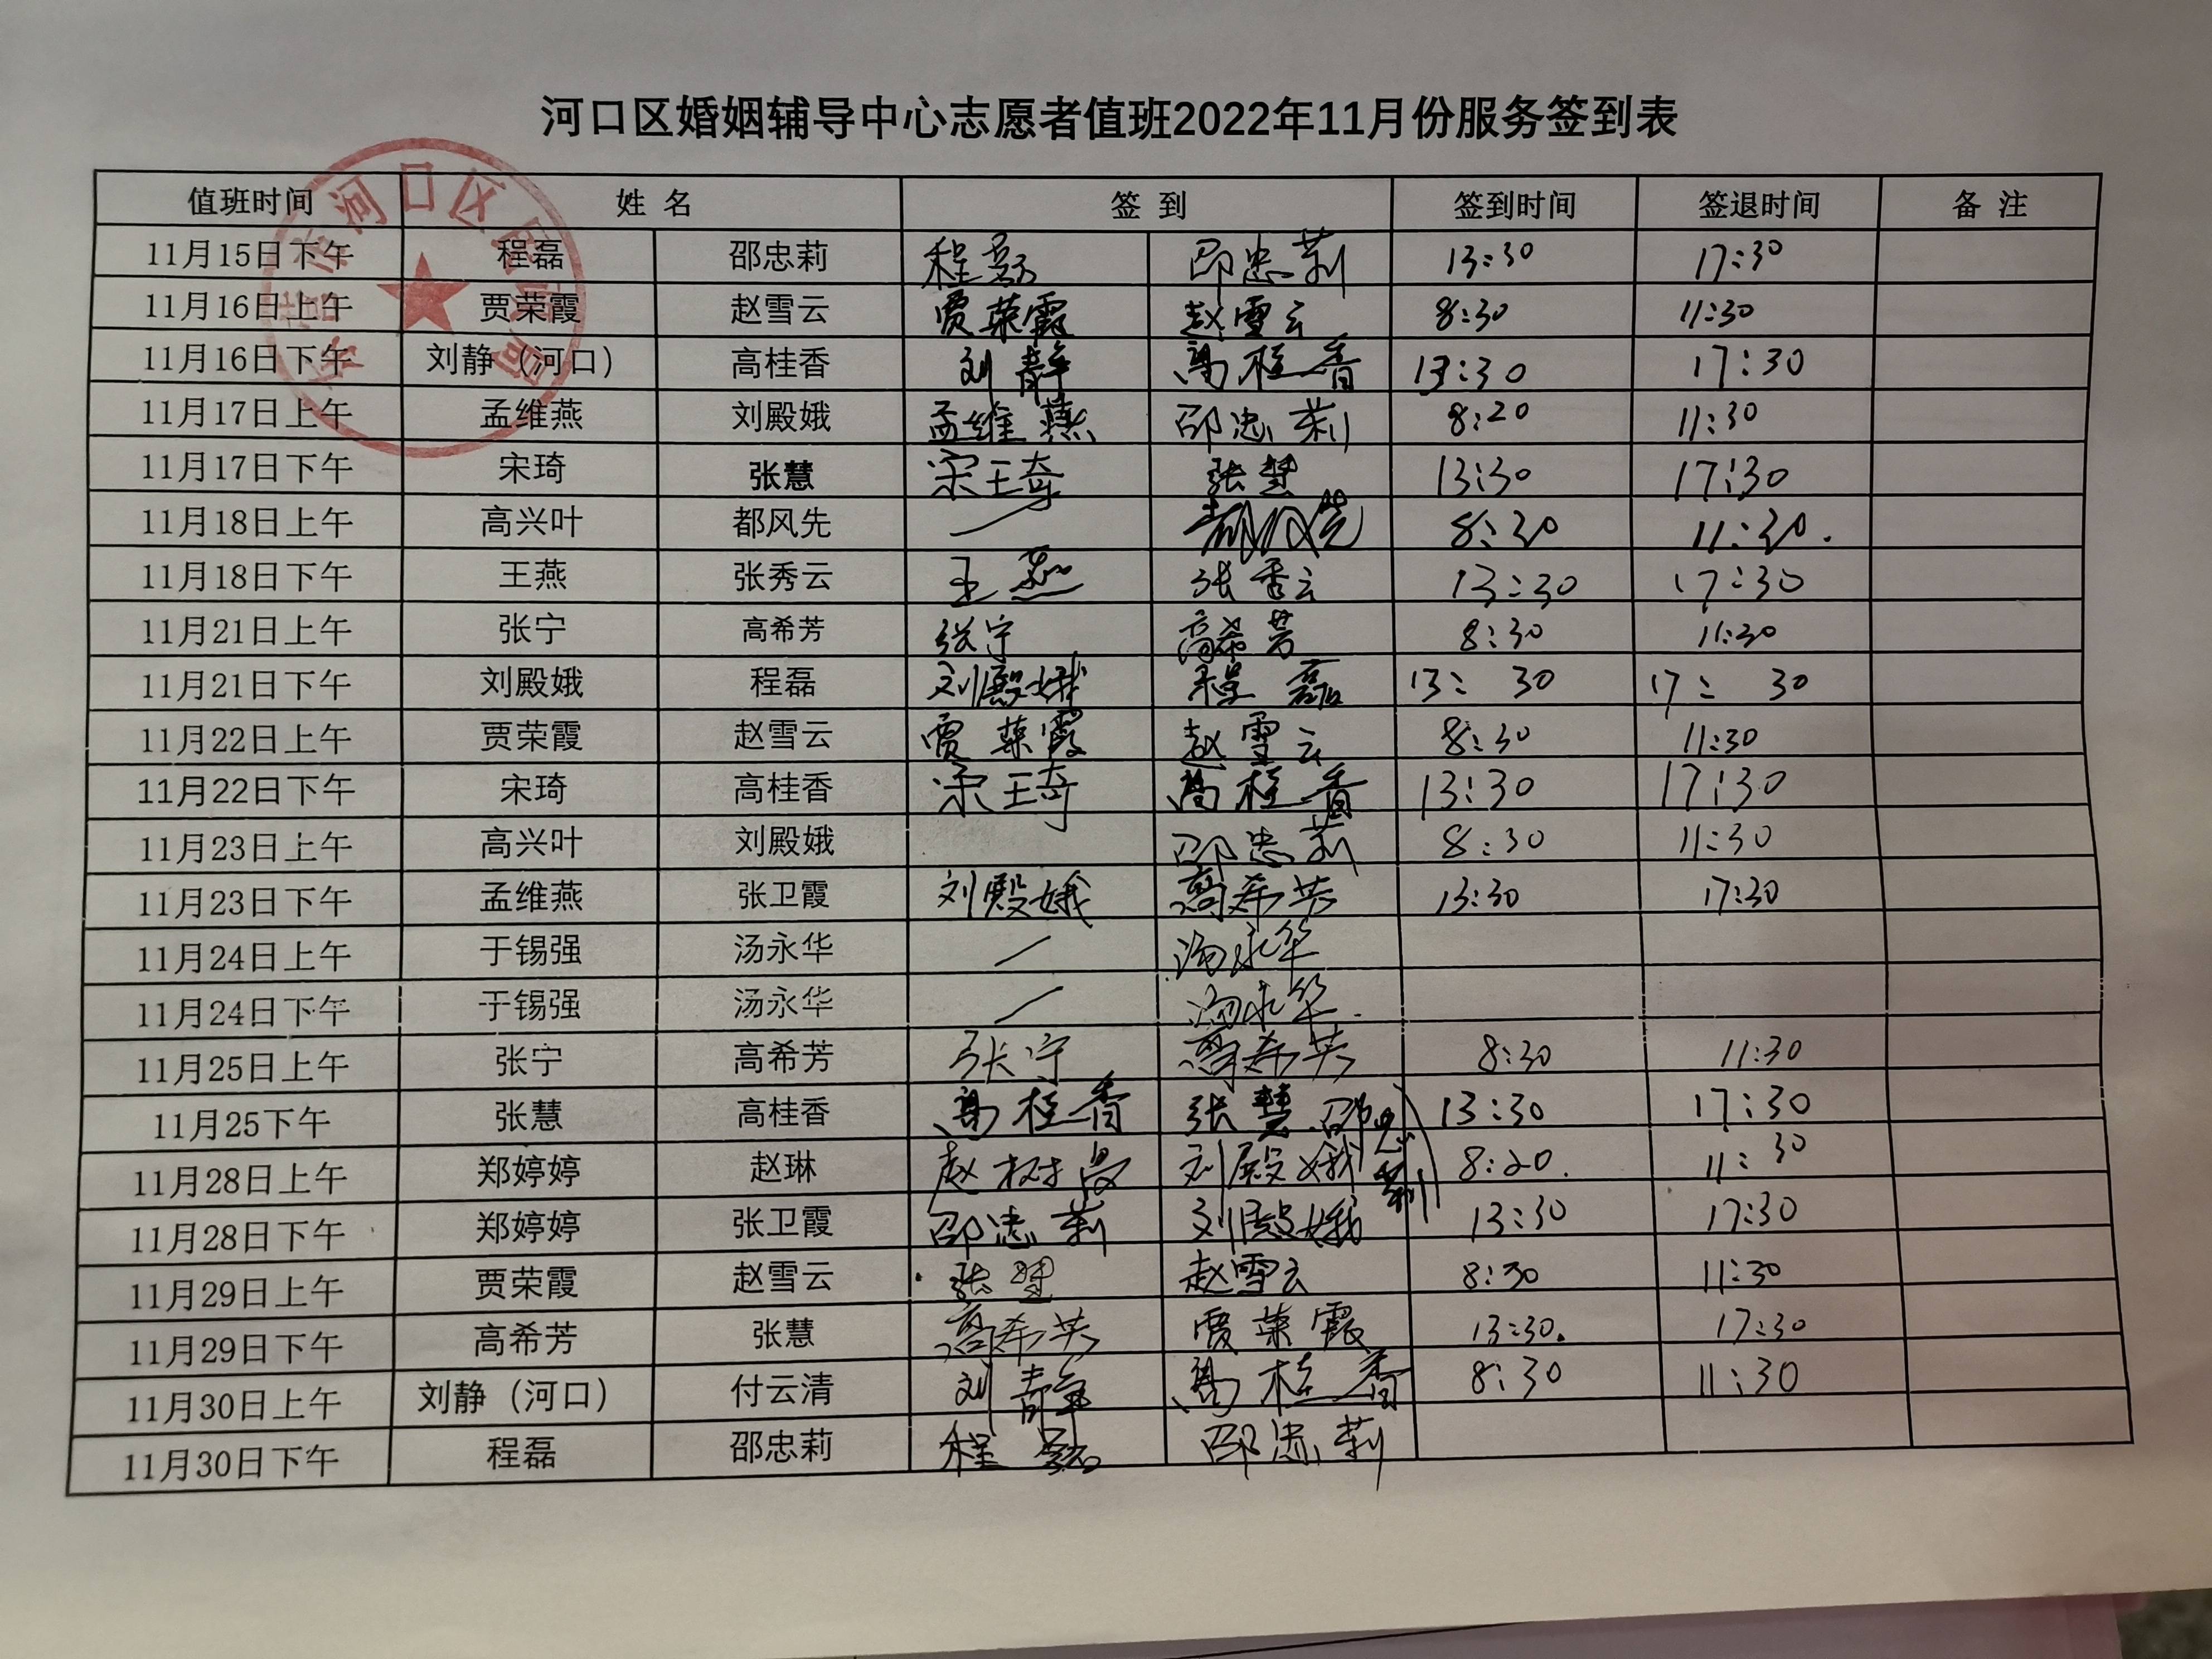 河口区婚姻辅导中心志愿者值班2022年11月份服务签到表
值班时间 姓 名 签 到 签到时间 签退时间 备 注
11月15日下午 程磊 邵忠莉 程磊 邵忠莉 13:30 17:30
11月16日上午 贾荣霞 赵雪云 贾荣霞 赵雪云 8:30 11:30
11月16日下午 刘静（河口） 高桂香 刘静 高桂香 13:30 17:30
11月17日上午 孟维燕 刘殿娥 孟维燕 邵忠莉 8:20 11:30
11月17日下午 宋琦 张慧 宋琦 张慧 13:30 17:30
11月18日上午 高兴叶 都风先 — 都风先 8:30 11:30.
11月18日下午 王燕 张秀云 王燕 张秀云 13:30 17:30
11月21日上午 张宁 高希芳 张宁 高希芳 8:30 11:30
11月21日下午 刘殿娥 程磊 刘殿娥 程磊 13: 30 17: 30
11月22日上午 贾荣霞 赵雪云 贾荣霞 赵雪云 8:30 11:30
11月22日下午 宋琦 高桂香 宋琦 高桂香 13:30 17:30
11月23日上午 高兴叶 刘殿娥 邵忠莉 8:30 11:30
11月23日下午 孟维燕 张卫霞 刘殿娥 高希芳 13:30 17:30
11月24日上午 于锡强 汤永华 — 汤永华
11月24日下午 于锡强 汤永华 — 汤永华
11月25日上午 张宁 高希芳 张宁 高希芳 8:30 11:30
11月25下午 张慧 高桂香 高桂香 张慧 邵忠莉 13:30 17:30
11月28日上午 郑婷婷 赵琳 赵树 刘殿娥 8:20. 11:30
11月28日下午 郑婷婷 张卫霞 邵忠莉 刘殿娥 13:30 17:30
11月29日上午 贾荣霞 赵雪云 张慧 赵雪云 8:30 11:30
11月29日下午 高希芳 张慧 高希芳 贾荣霞 13:30. 17:30
11月30日上午 刘静（河口） 付云清 刘静 高桂香 8:30 11:30
11月30日下午 程磊 邵忠莉 程磊 邵忠莉